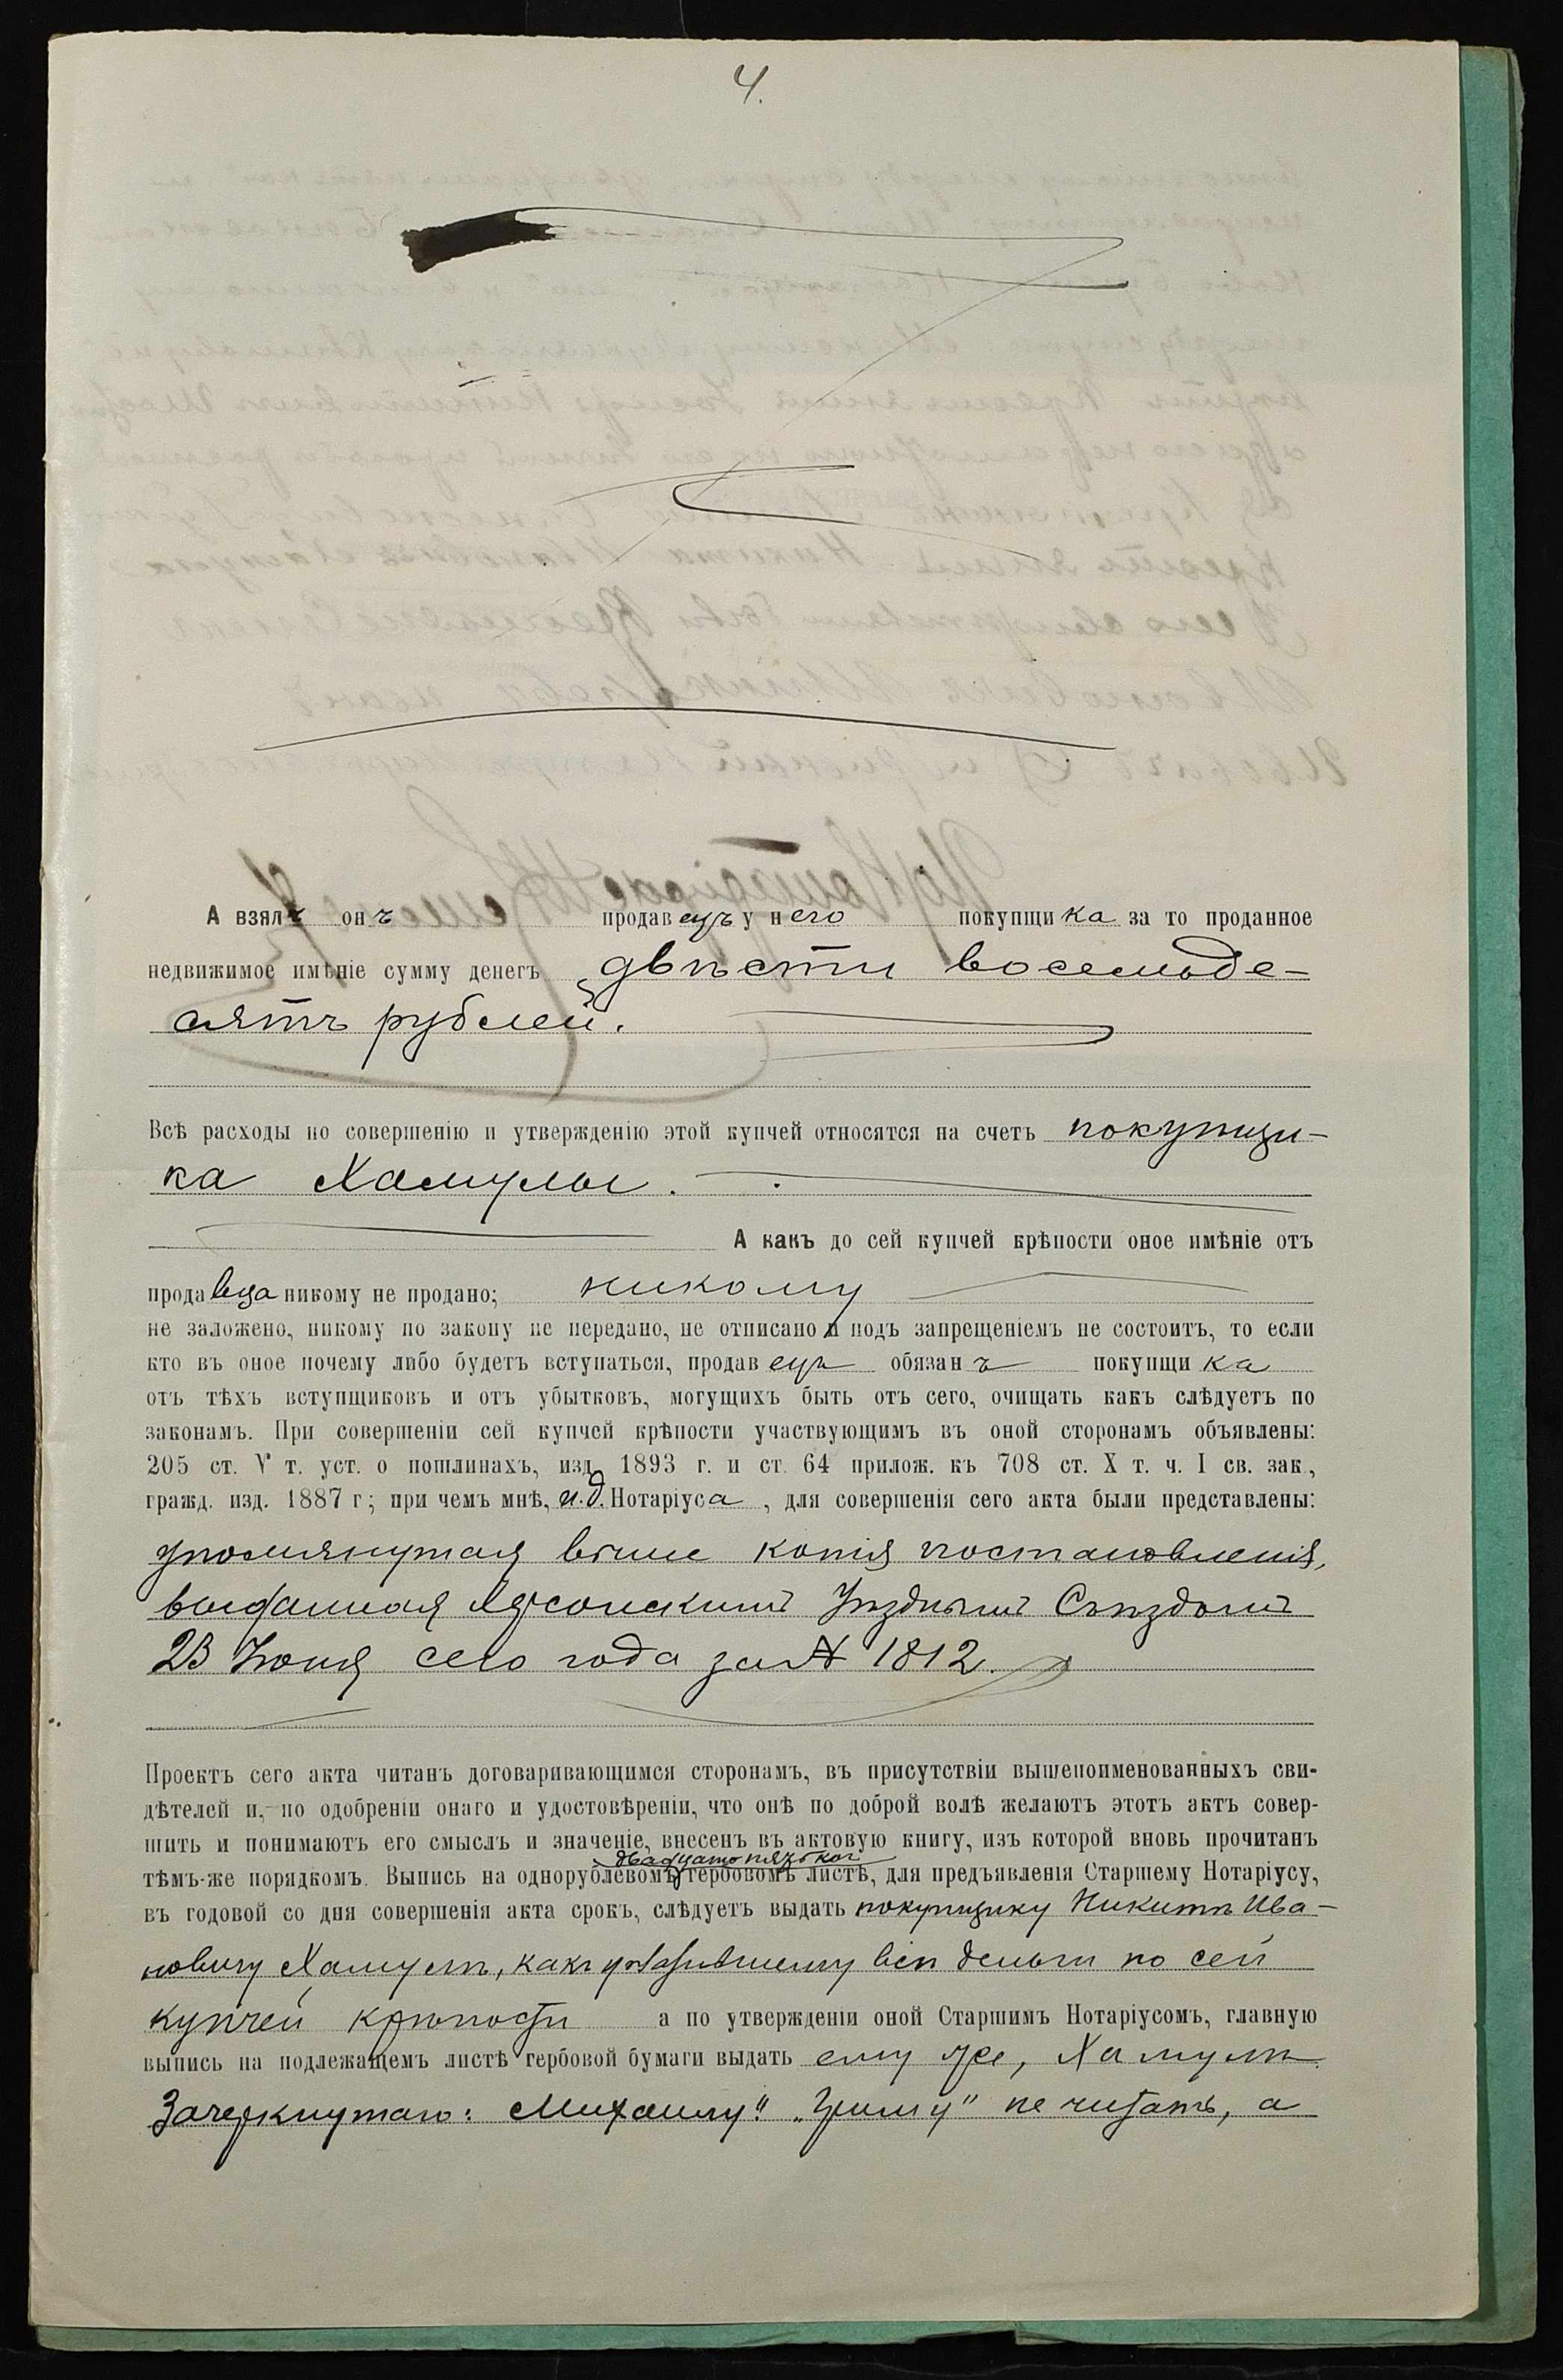 4.
А взялъ онъ продавецъ у него покупщика за то проданное
недвижимое имѣніе сумму денегъ двѣсти восемьде-
сятъ рублей.
Всѣ расходы по совершенію и утвержденію этой купчей относятся на счетъ покупщи-
ка Хамулы.
А какъ до сей купчей крѣпости оное имѣніе отъ
продавца никому не продано; никому
не заложено, никому по закону не передано, не отписано и подъ запрещеніемъ не состоитъ, то если
кто въ оное почему либо будетъ вступаться, продавецъ обязанъ покупщика
отъ тѣхъ вступщиковъ и отъ убытковъ, могущихъ быть отъ сего, очищать какъ слѣдуетъ по
законамъ. При совершеніи сей купчей крѣпости участвующимъ въ оной сторонамъ объявлены:
205 ст. V т. уст. о пошлинахъ, изд. 1893 г. и ст. 64 прилож. къ 708 ст. X т. ч. I св. зак.,
гражд. изд. 1887 г; при чемъ мнѣ, и.д. Нотаріуса, для совершенія сего акта были представлены:
упомянутая выше копія постановленія,
выданная Херсонскимъ Уѣзднымъ Съѣздомъ
23 Іюня сего года за № 1812.
Проектъ сего акта читанъ договаривающимся сторонамъ, въ присутствіи вышепоименованныхъ сви-
дѣтелей и, по одобреніи онаго и удостовѣреніи, что онѣ по доброй волѣ желаютъ этотъ актъ совер-
шить и понимаютъ его смыслъ и значеніе, внесенъ въ актовую книгу, изъ которой вновь прочитанъ
двадцатопяти коп
тѣмъ-же порядкомъ. Выпись на однорублевомъ гербовомъ листѣ, для предъявленія Старшему Нотаріусу,
въ годовой со дня совершенія акта срокъ, слѣдуетъ выдать покупщику Никитѣ Ива-
новичу Хамулѣ, какъ уплатившему всѣ деньги по сей
купчей крѣпости а по утвержденіи оной Старшимъ Нотаріусомъ, главную
выпись на подлежащемъ листѣ гербовой бумаги выдать ему же, Хамулѣ.
Зачеркнутаго: Михаилу" не читать, а